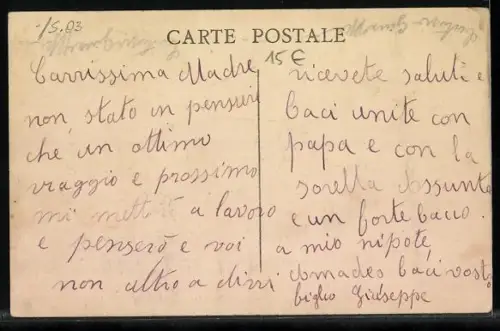 -/5.03
CARTE POSTALE
15 €
Carrissima Madre
non stato in pensieri
che un ottimo
viaggio e prossimo
mi metto a lavoro
e penserò e voi
non altro a dirvi
ricevete saluti e
baci unite con
papa e con la
sorella Assunta
e un forte bacio
a mio nipote,
baci vostro
figlio Giuseppe